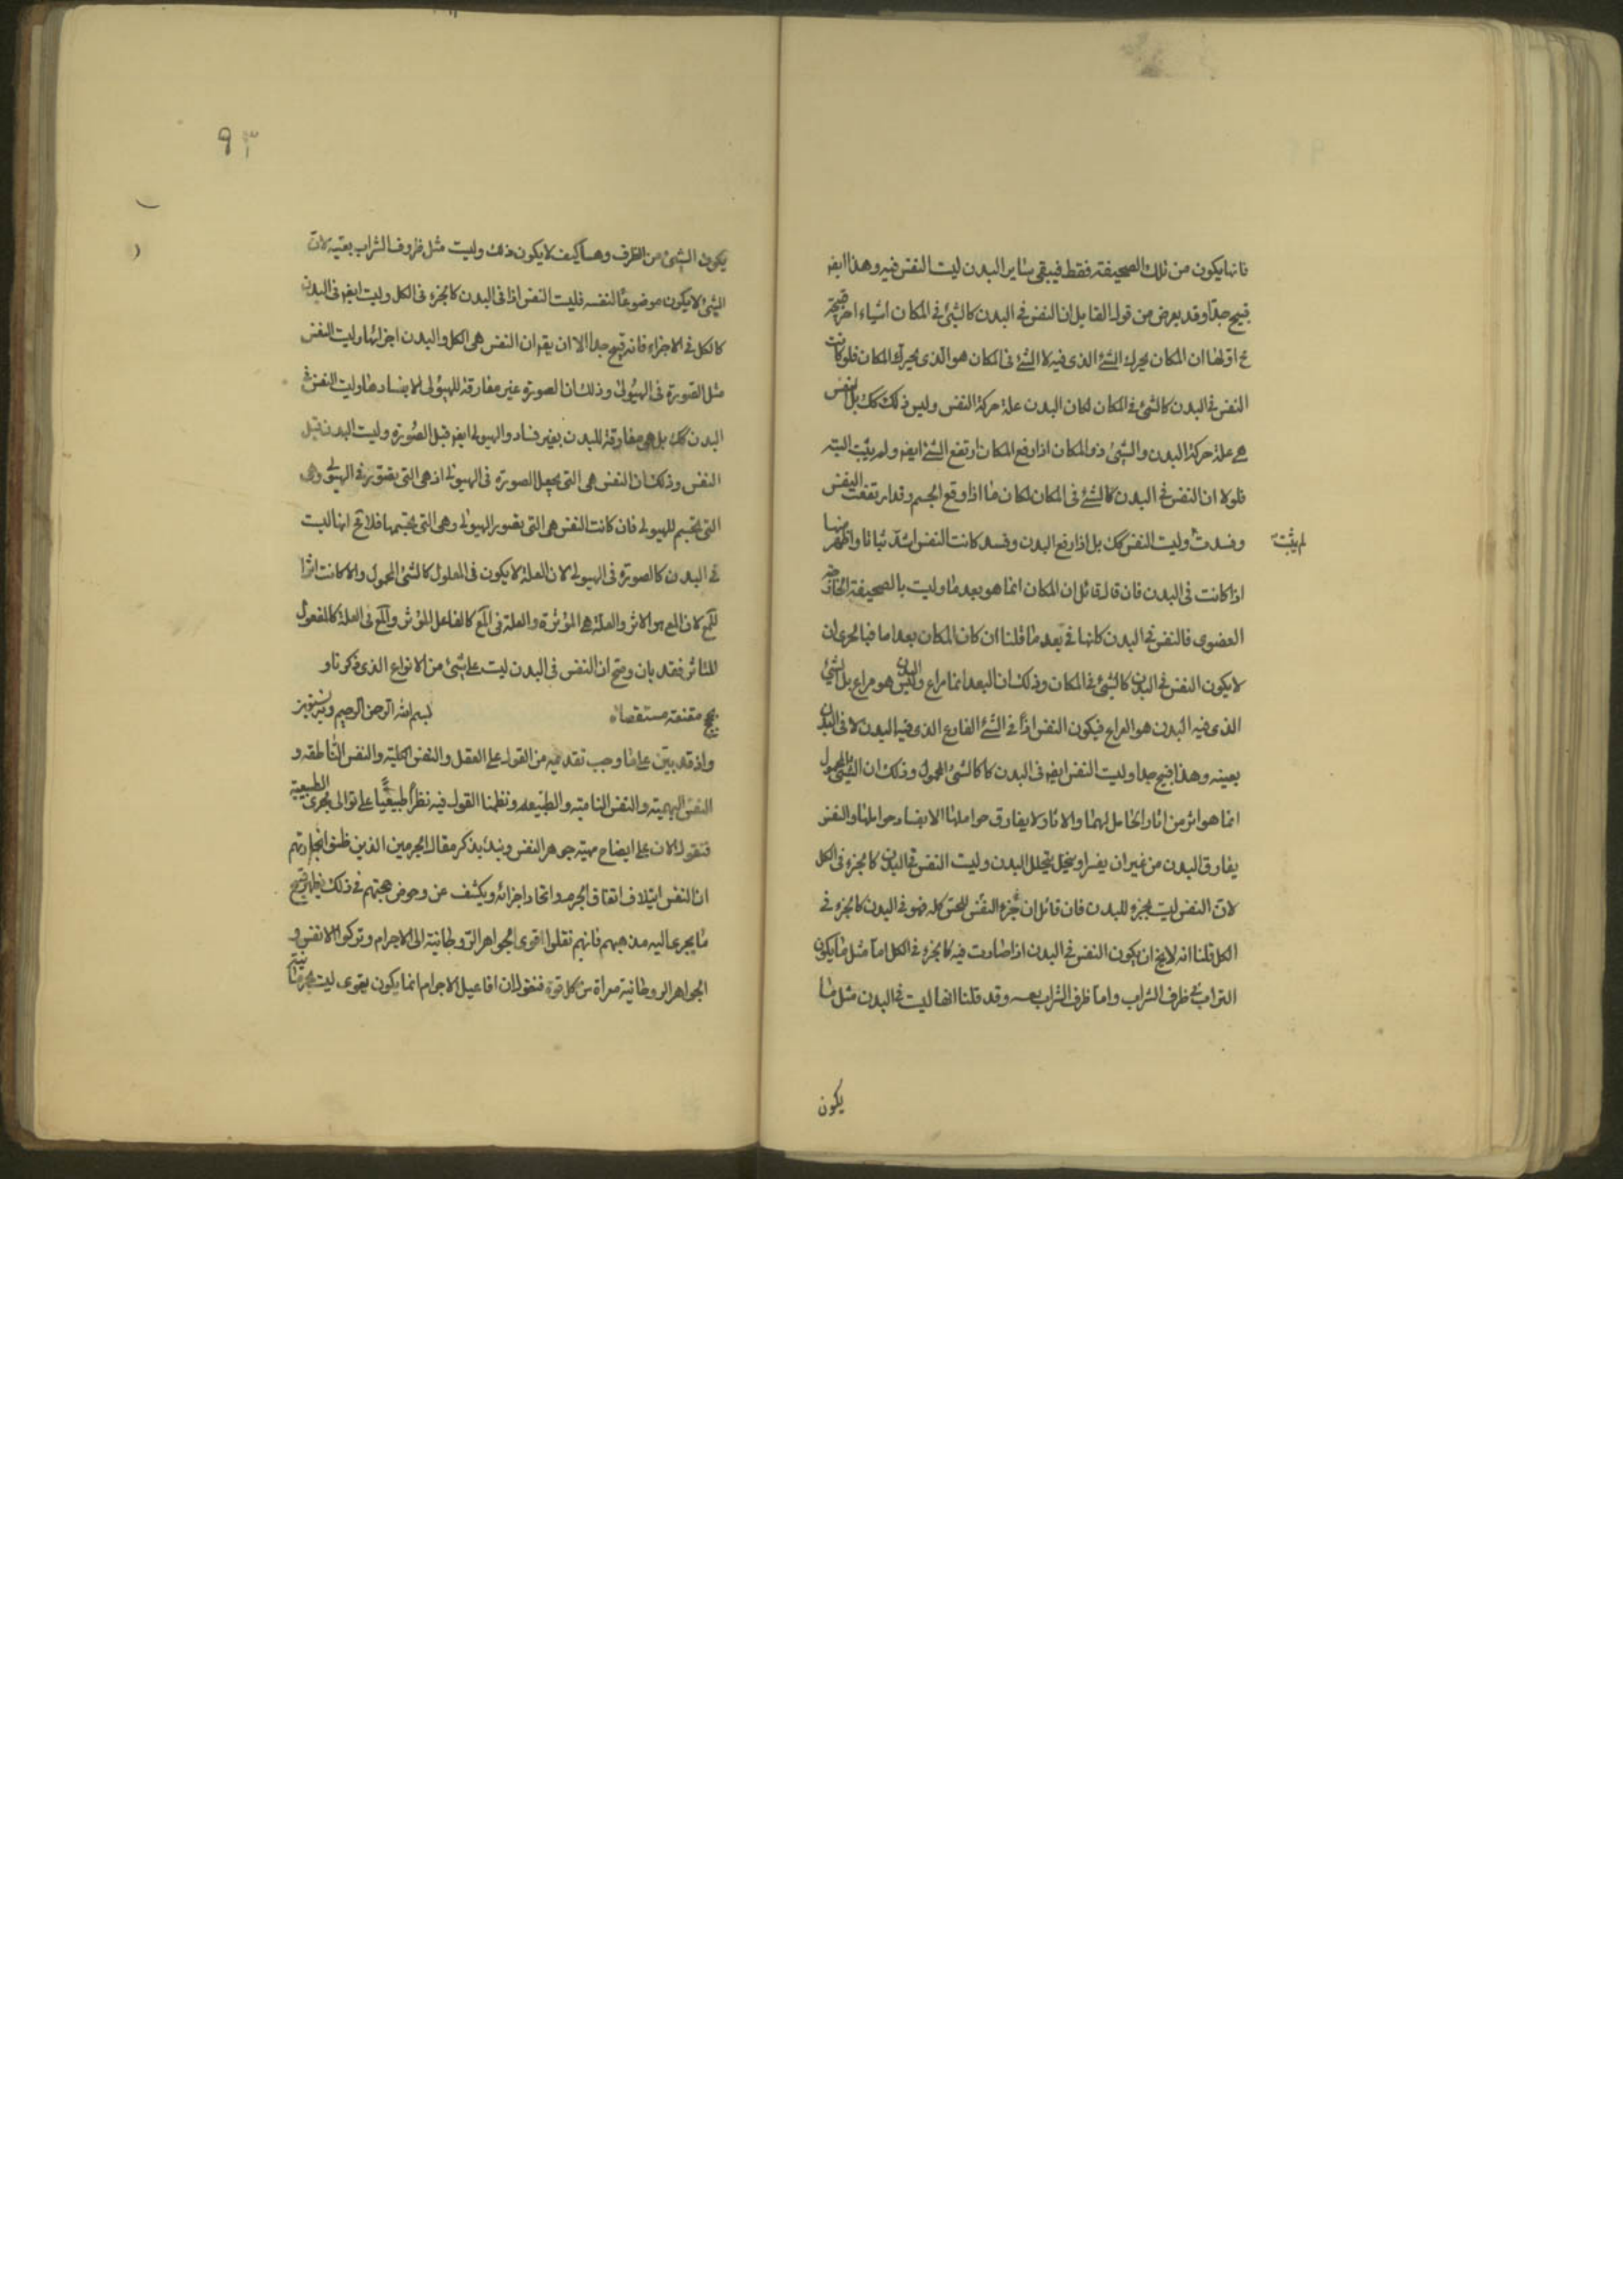 فانها يكون من تلك الصحيفة فقط فيبقى ساير البدن ليست النفس فيه وهذا ايض
قبيح جدا وقد يعرض من قول القايل ان النفس في البدن كالشئ في المكان اشياء اخر قبيحة
اولها ان المكان يحرك الشئ الذى فيه لا الشئ فى المكان هو الذى يحرك المكان فلو كانت
النفس في البدن كالشئ في المكان لكان البدن علة حركة النفس وليس ذلك كك بل النفس
هى علة حركة البدن والشئ ذو المكان اذا رفع المكان ارتفع الشئ ايض ولم يثبت البتة
فلولا ان النفس في البدن كالشئ فى المكان لكان ما اذا رفع الجسم وقد ارتفعت النفس
وفسدت وليست النفس كك بل اذا رفع البدن وفسد كانت النفس اشد ثباتا واظهر منها
لم يثبت
اذا كانت فى البدن فان قال قائل ان المكان انما هو بعد ما وليست بالصحيفة الخارجة
القصوى فالنفس في البدن كانها في بعد ما قلنا ان كان المكان بعدا ما فبالحرى ان
لا يكون النفس في البدن كالشئ في المكان وذلك ان البعد انما فراغ والبدن ليس هو فراغ بل الشئ
الذى فيه البدن هو الفراغ فيكون النفس اذا في الشئ الفارغ الذى فيه البدن لا فى البدن
بعينه وهذا قبيح جدا وليست النفس ايض فى البدن كالشئ المحمول وذلك ان الشئ المحمول
انما هو اثر من اثار الحامل لهما والاثار لا يفارق حواملها الا بفساد حواملها والنفس
يفارق البدن من غير ان يفسد او ينحل بتحلل البدن وليست النفس في البدن كالجزء فى الكل
لان النفس ليست بجزء للبدن فان قائل ان جزء النفس للحى كله فهو في البدن كالجزء في
الكل قلنا انه لا يخ ان يكون النفس في البدن اذا صارت فيه كالجزء في الكل اما مثل ما يكون
الشراب في ظرف الشراب واما ظرف الشراب بعينه وقد قلنا انها ليست في البدن مثل ما
يكون
٩٣
يكون الشئ من الظرف وهنا كيف لا يكون ذلك وليست مثل ظروف الشراب بعينه لان
الشئ لا يكون موضوعا لنفسه فليست النفس اذا فى البدن كالجزء فى الكل وليست ايض فى البدن
كالكل في الاجزاء فانه قبيح جدا الا ان يقم ان النفس هى الكل والبدن اجزائها وليست النفس
مثل الصورة فى الهيولى وذلك ان الصورة غير مفارقة للهيولى الا بفسادها وليست النفس في
البدن كك بل هى مفارقة للبدن بغير فساد والهيولى ايض قبل الصورة وليست البدن قبل
النفس وذلك ان النفس هى التى يجعل الصورة فى الهيولى اذ هى التى يصور في الهيولى وهى
التى يجسم للهيولى فان كانت النفس هى التى يصور الهيولى وهى التى يجسمها فلا مح انها ليست
في البدن كالصورة فى الهيولى لان العلة لا يكون فى المعلول كالشئ المحمول والا كانت اثرا
للمع لان المع هو الاثر والعلة هى المؤثرة والعلة فى المع كالفاعل المؤثر والمع فى العلة كالمفعول
المتاثر فقد بان وصح ان النفس فى البدن ليست على شئ من الانواع الذى ذكرنا و
بحجج مقنعة مستقصاة بسم الله الرحمن الرحيم وبه نستعين
واذ قد بين على ما وجب تقديمه من القول على العقل والنفس الكلية والنفس الناطقة و
النفس البهيمية والنفس النامية والطبيعة ونظمنا القول فيه نظما طبيعيا على توالى مجرى الطبيعة
فنقول الان على ايضاح مهية جوهر النفس ونبدا بذكر مقالة الجرميين الذين ظنوا بجهالتهم
ان النفس ايتلاف اتفاق الجرم واتحاد اجزائه ويكشف عن دحوض حجتهم في ذلك فيظهر قبيح
ما يجرى اليه مذهبهم فانهم نقلوا قوى الجواهر الروحانية الى الاجرام وتركوا الانفس و
الجواهر الروحانية معراة من كل قوة فنقول ان افاعيل الاجرام انما يكون بقوى ليست بجرمانية